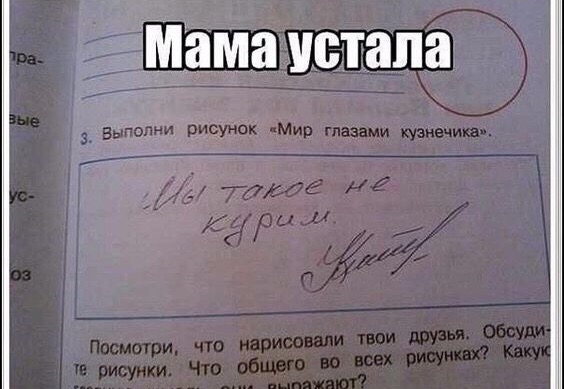 Мама устала
пра-
вые
3. Выполни рисунок «Мир глазами кузнечика».
Мы такое не
курим.
ус-
оз
Посмотри, что нарисовали твои друзья. Обсуди-
те рисунки. Что общего во всех рисунках? Какую
они выражают?